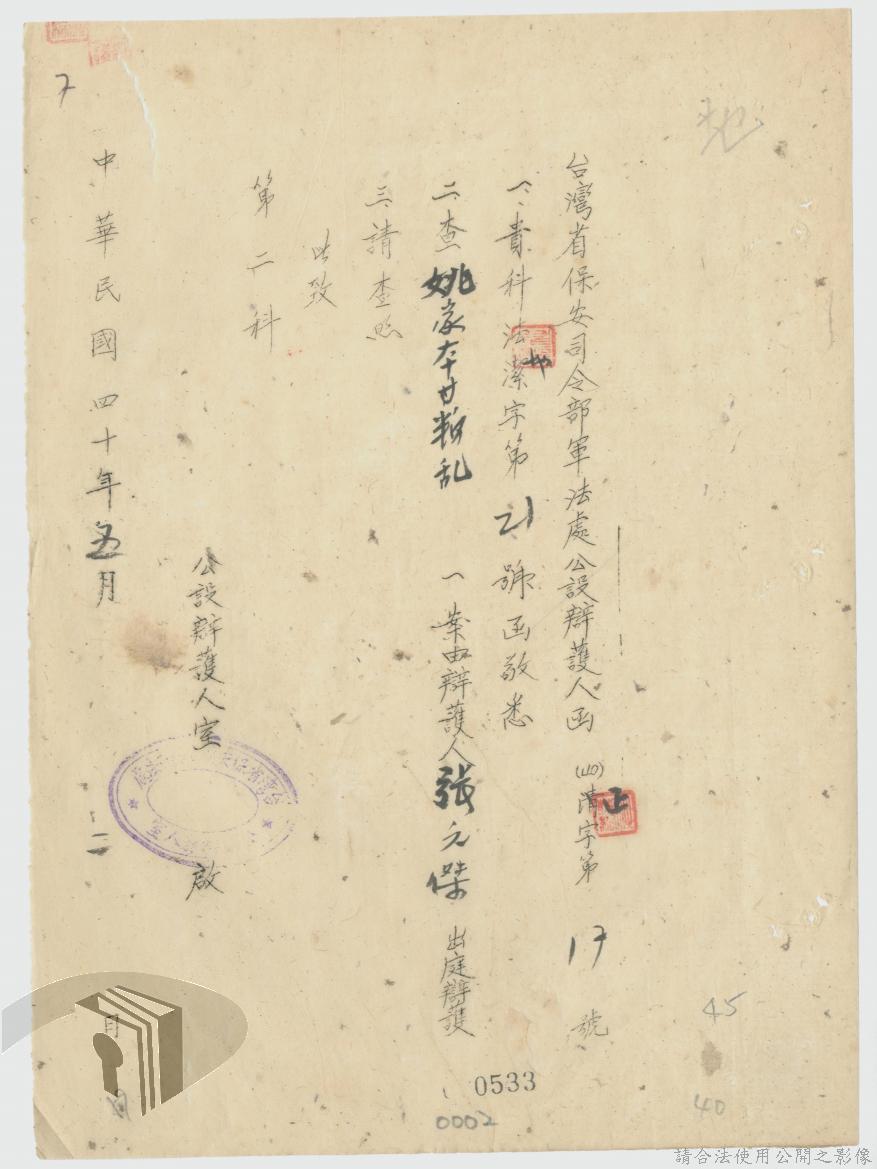 台灣省保安司令部軍法處公設辯護人函 (40)清字第 17 號
正
一、貴科法潔字第 21 號函敬悉
二、查姚家本廿叛乱 一案由辯護人張元傑 出庭辯護
三、請查照
此致
第二科
公設辯護人室 啟
中華民國四十年五月 二 日
7
45
40
0533
0002
請合法使用公開之影像